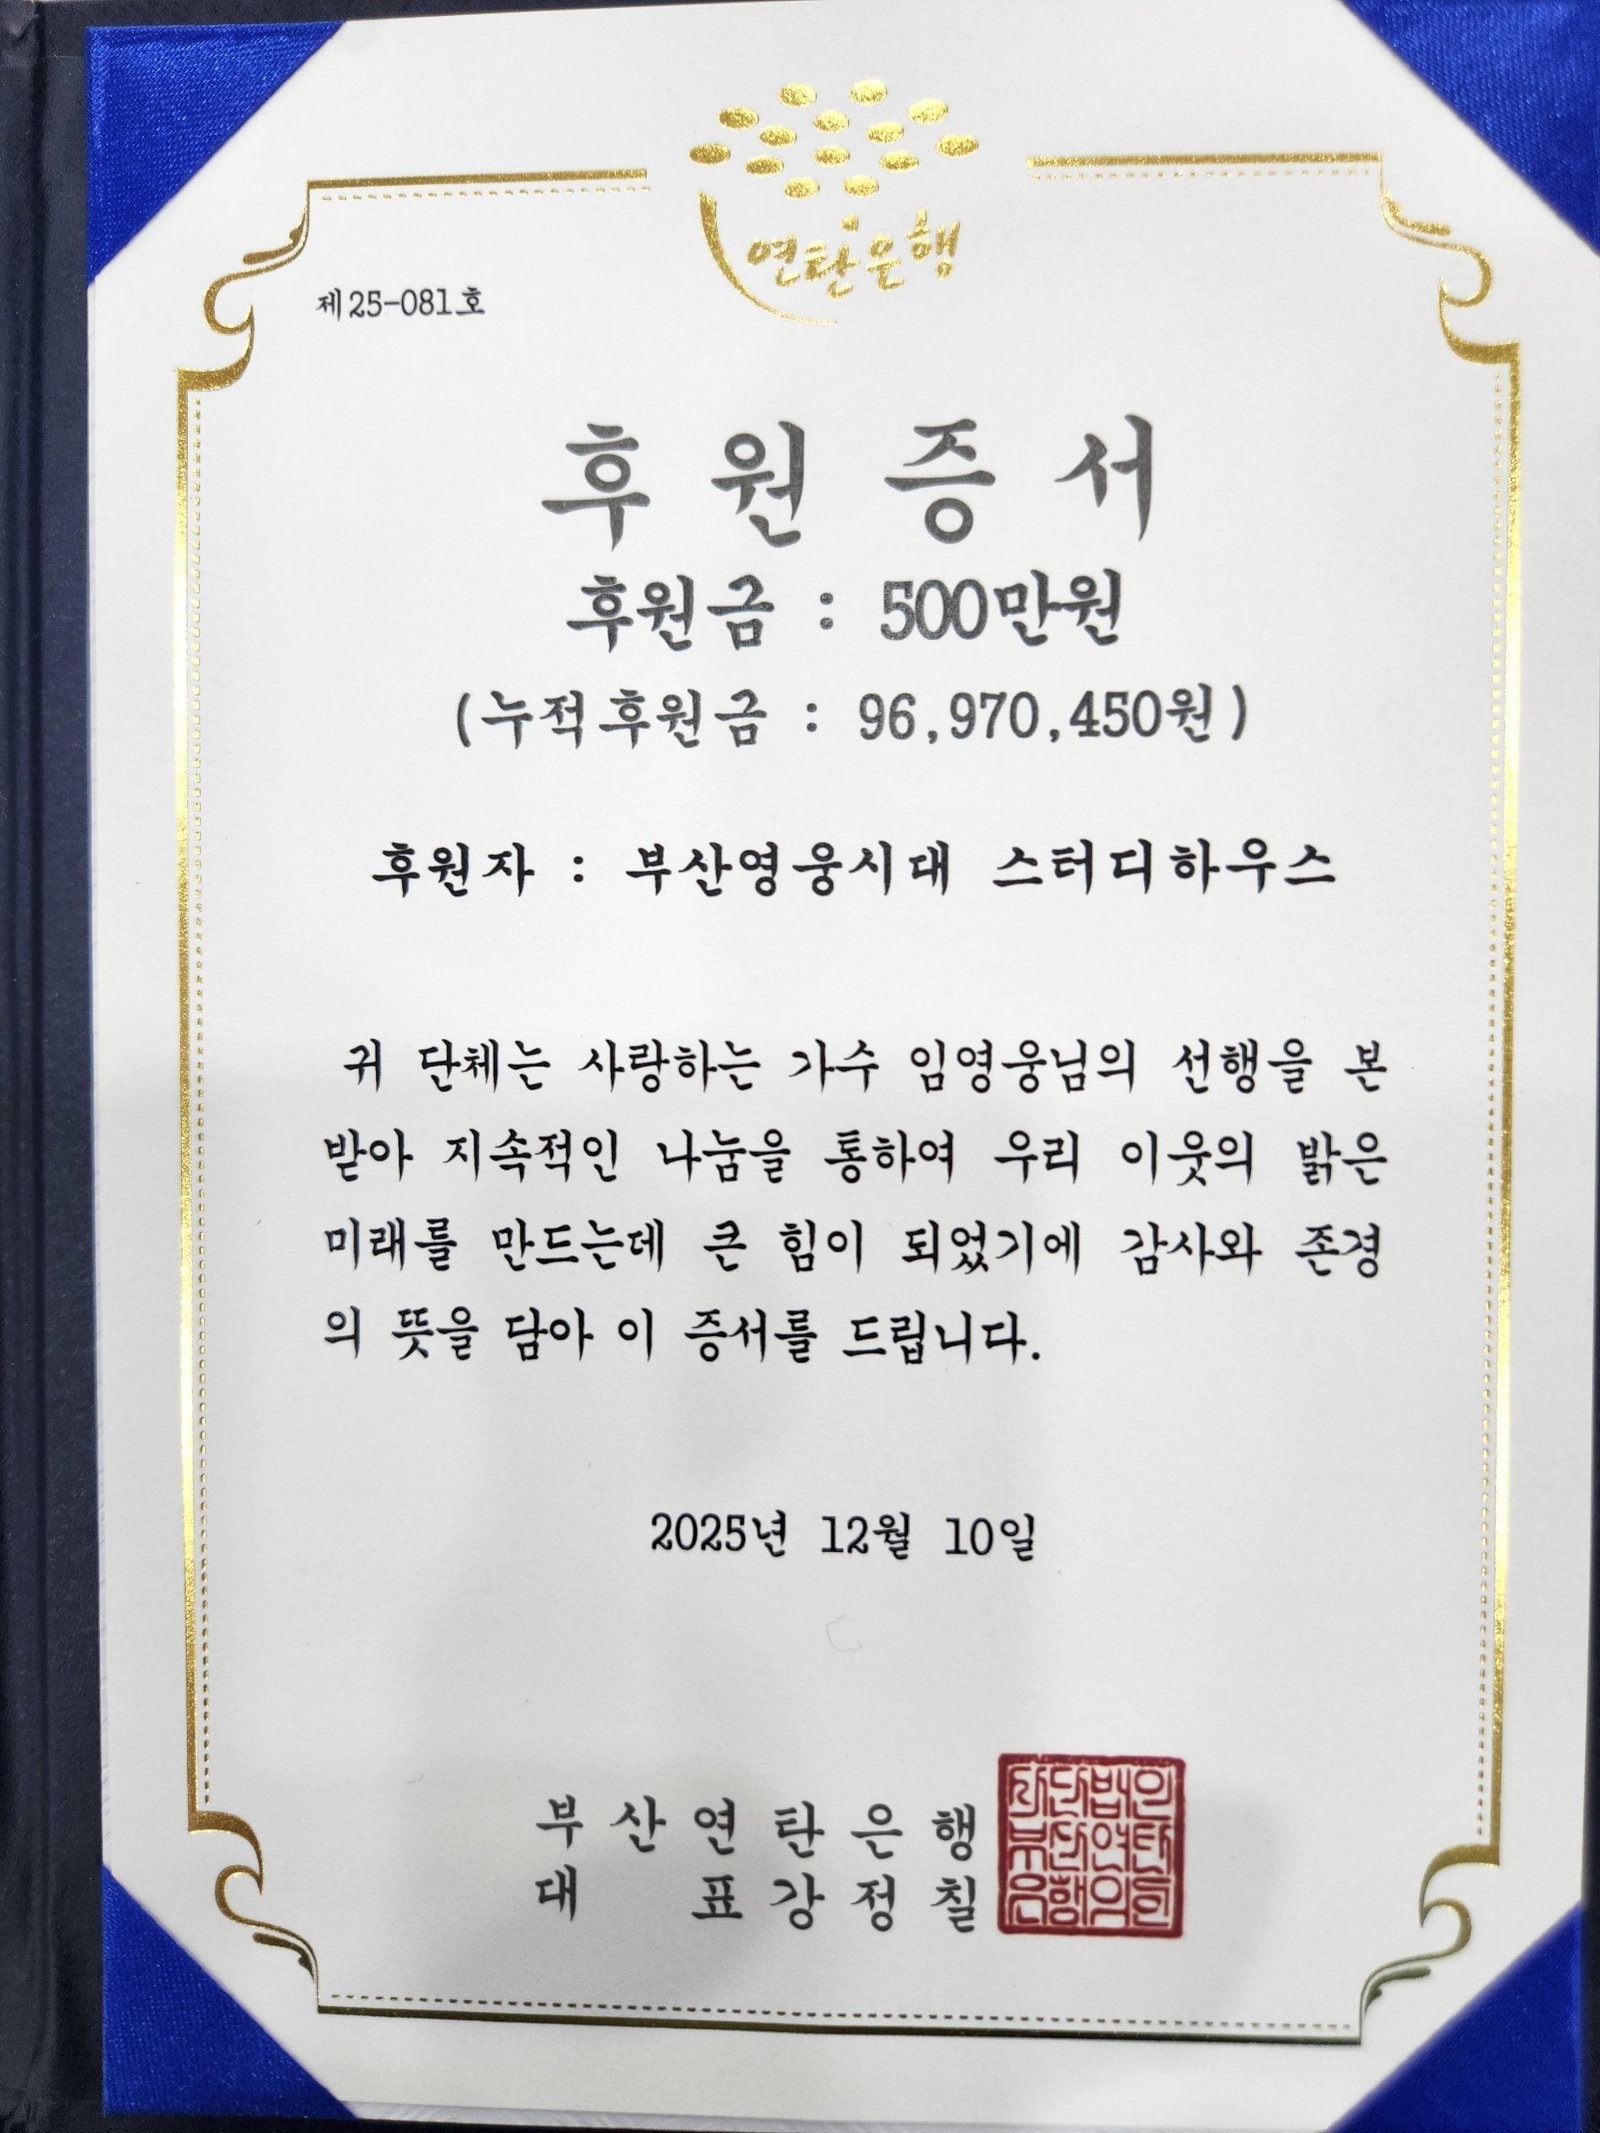 연탄은행
제25-081호
후원증서
후원금 : 500만원
(누적후원금 : 96,970,450원)
후원자 : 부산영웅시대 스터디하우스
귀 단체는 사랑하는 가수 임영웅님의 선행을 본
받아 지속적인 나눔을 통하여 우리 이웃의 밝은
미래를 만드는데 큰 힘이 되었기에 감사와 존경
의 뜻을 담아 이 증서를 드립니다.
2025년 12월 10일
부산연탄은행
대 표 강 정 칠
사단법인
부산연탄
은행의인